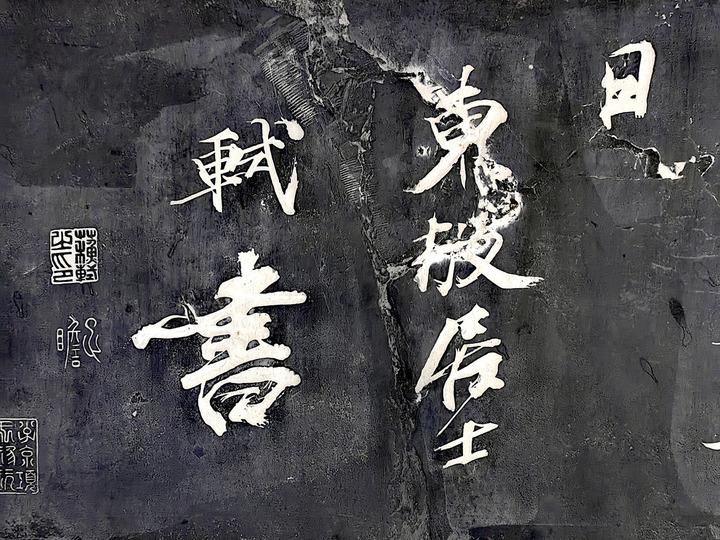 日
東坡居士
軾書
蘇軾之印
子瞻